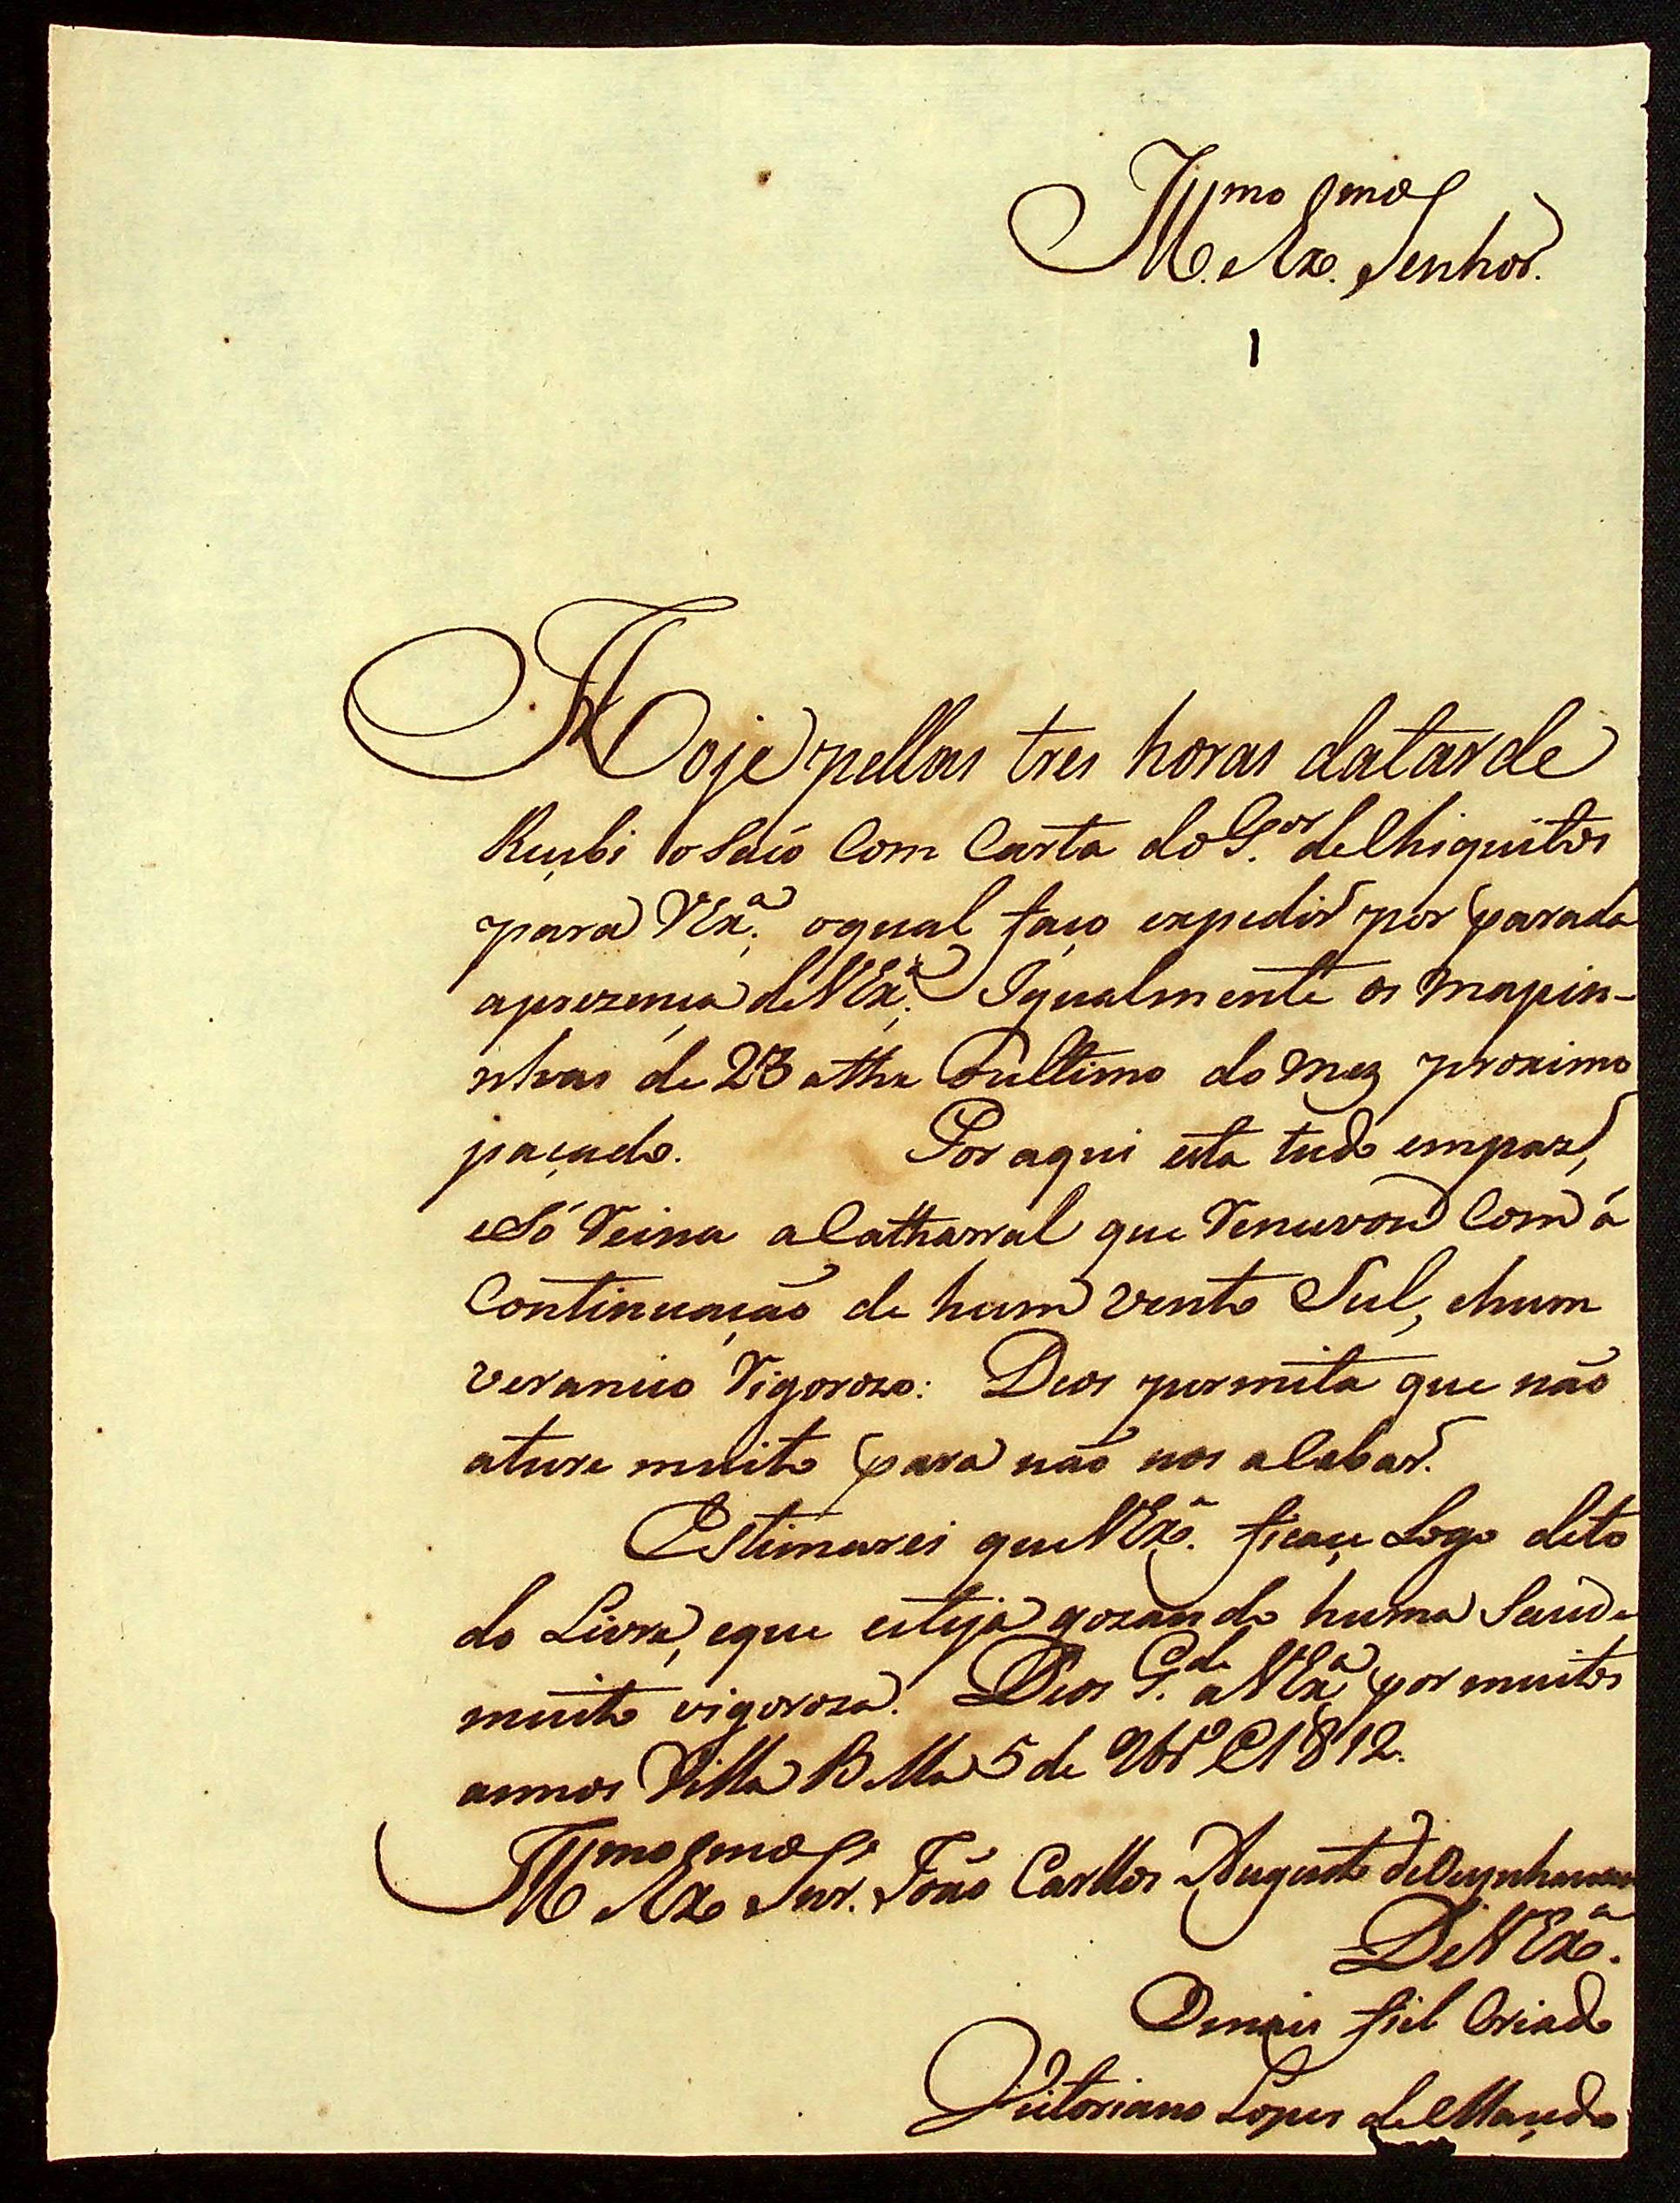 Ill.mo Ex.mo Senhor.
1
Hoje pellas tres horas datarde
Ruçbi o Sacó Com Carta do G.or deChiquitos
para VEx.a oqual faço expedir por parada
aprezença deVEx.a Igualmente os mapin-
nhas de 23 athe o ultimo do mez proximo
paçado. Por aqui esta tudo empaz,
eSó Reina aCatharral que Renuvou Com á
Continuação de hum vento Sul, ehum
veranico Rigorozo: Deos permita que não
ature muito para não nos aCabar.
Estimarei queVEx.a ficaçe Logo deto
do Livre, eque esteja gozando huma Saude
muito vigoroza. Deos G.de aVEx.a por muitos
annos Villa Bella 5 de 9br.o de 1812.
Ill.mo Ex.mo Snr. João Carllos Augusto deOeynhausen
DeVEx.a
Omais fiel Criado
Victoriano Lopes deMacedo